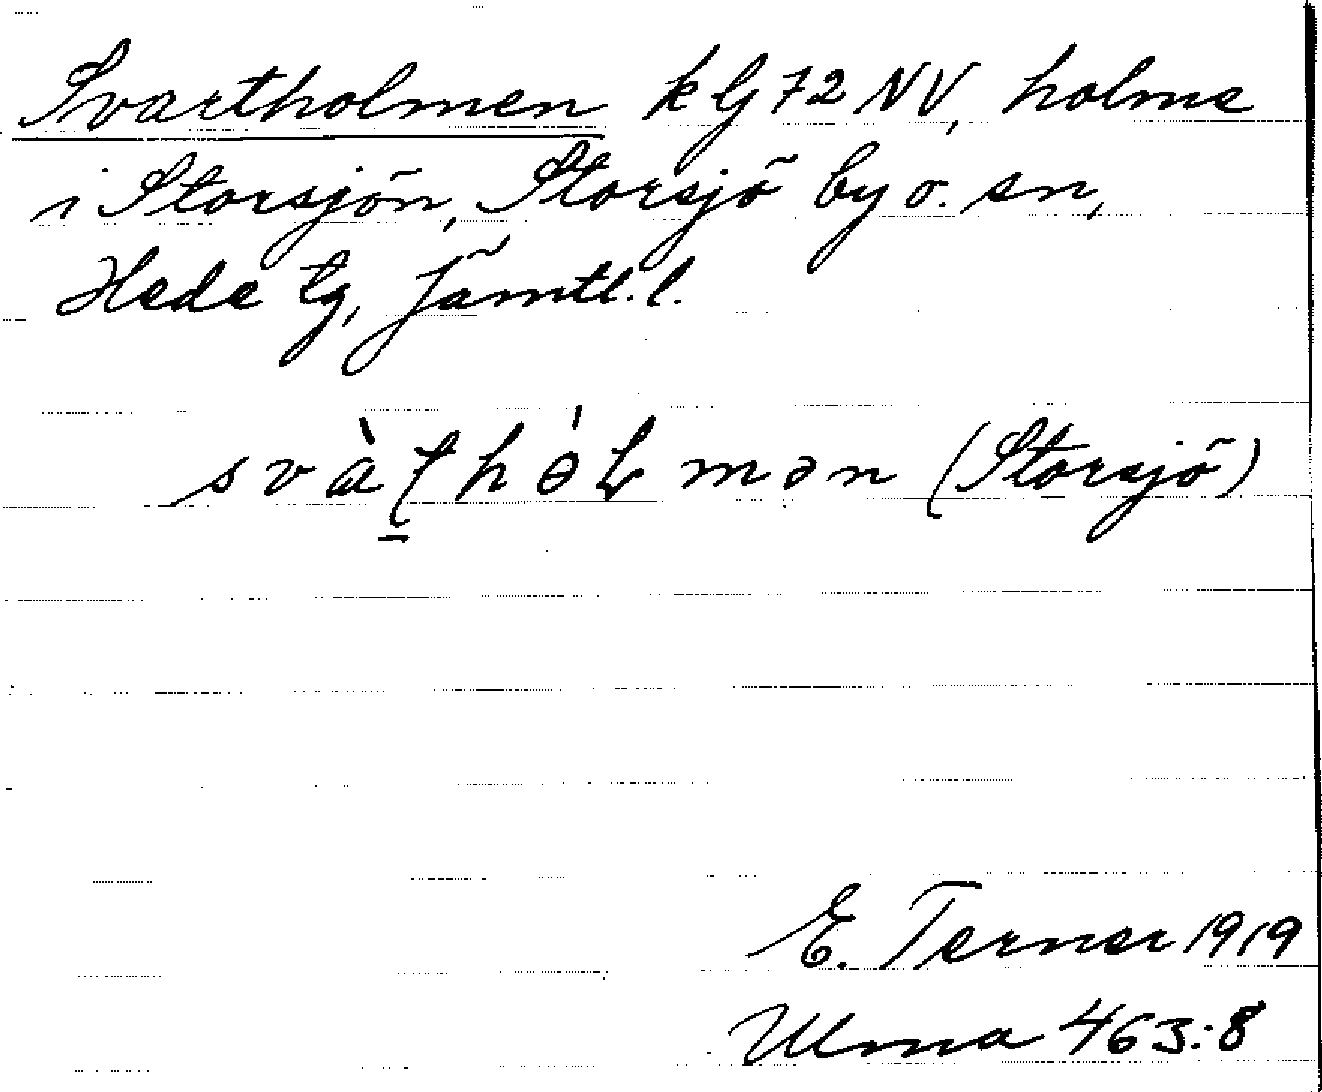 Svartholmen k G 72 NV, holme
i Storsjön, Storsjö by o. sn,
Hede tg, Jämtl. l.
(Storsjö)
E. Terner 1919
Ulma 463:8